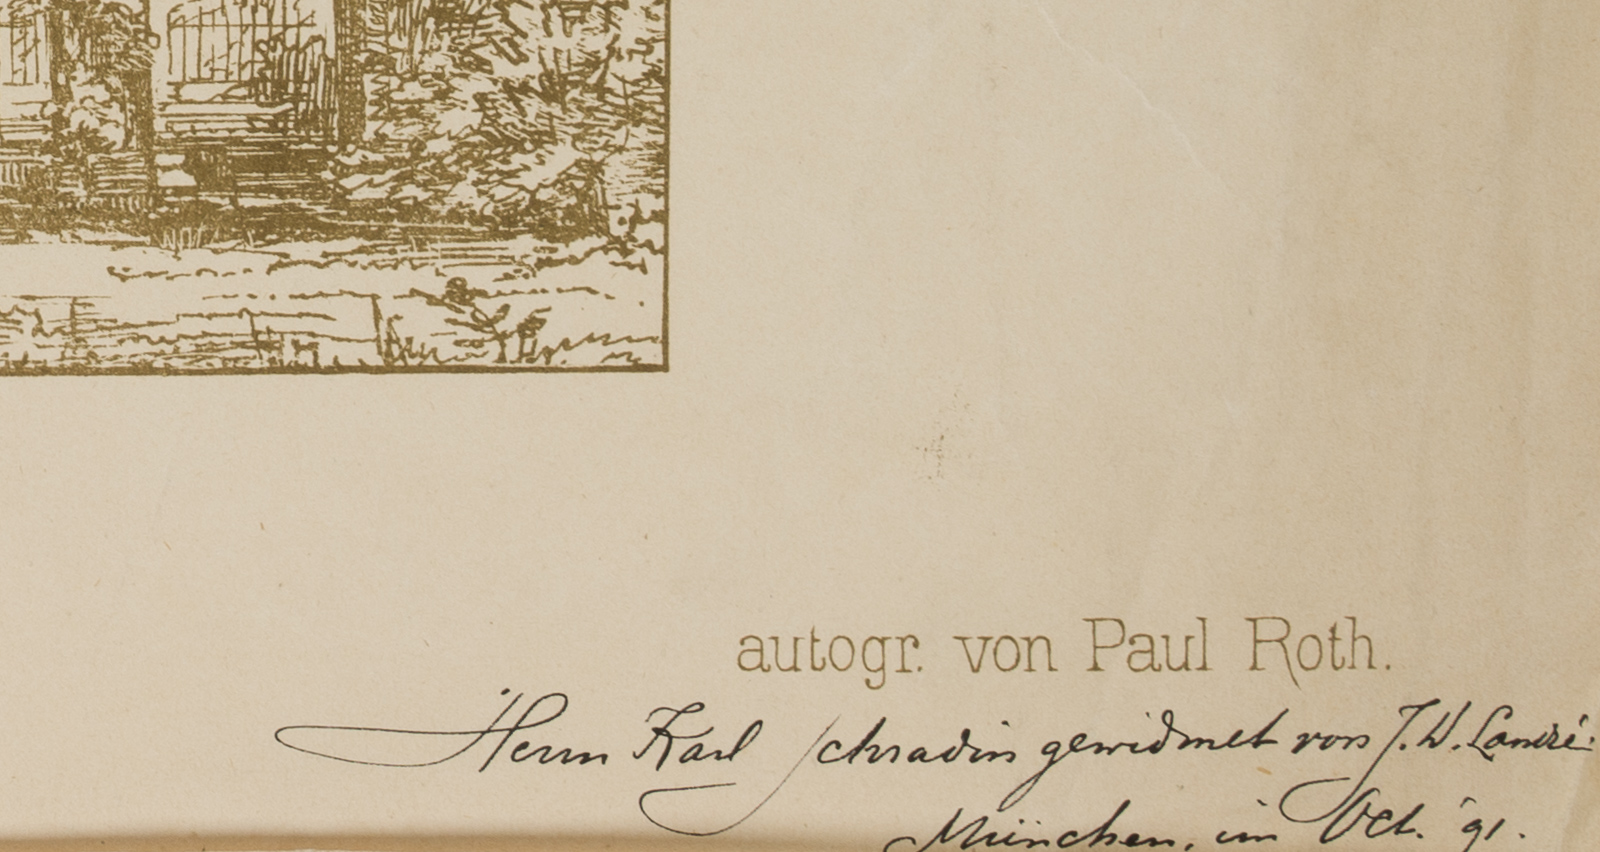 autogr. von Paul Roth.
Herrn Karl Schradin gewidmet von J. W.
München, im Oct. '91.